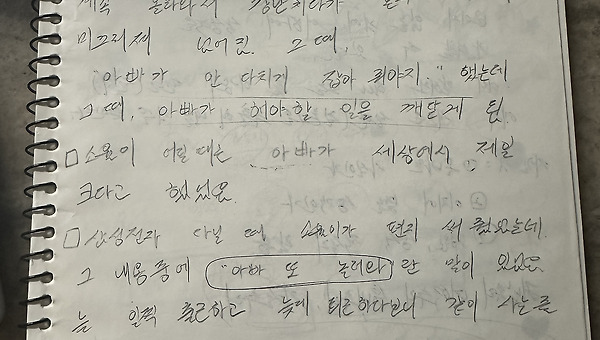 계속 올라와서 장난치다가
미끄러져 넘어짐. 그 때,
"아빠가 안 다치게 잡아 줘야지." 했는데
그 때, 아빠가 해야할 일을 깨닫게 됨
□ 소율이 어릴 때는 아빠가 세상에서 제일
크다고 했었음.
□ 삼성전자 다닐 때 소율이가 편지 써 줬었는데.
그 내용 중에 "아빠 또 놀러와"란 말이 있었음.
늘 일찍 출근하고 늦게 퇴근하다보니 같이 사는 줄